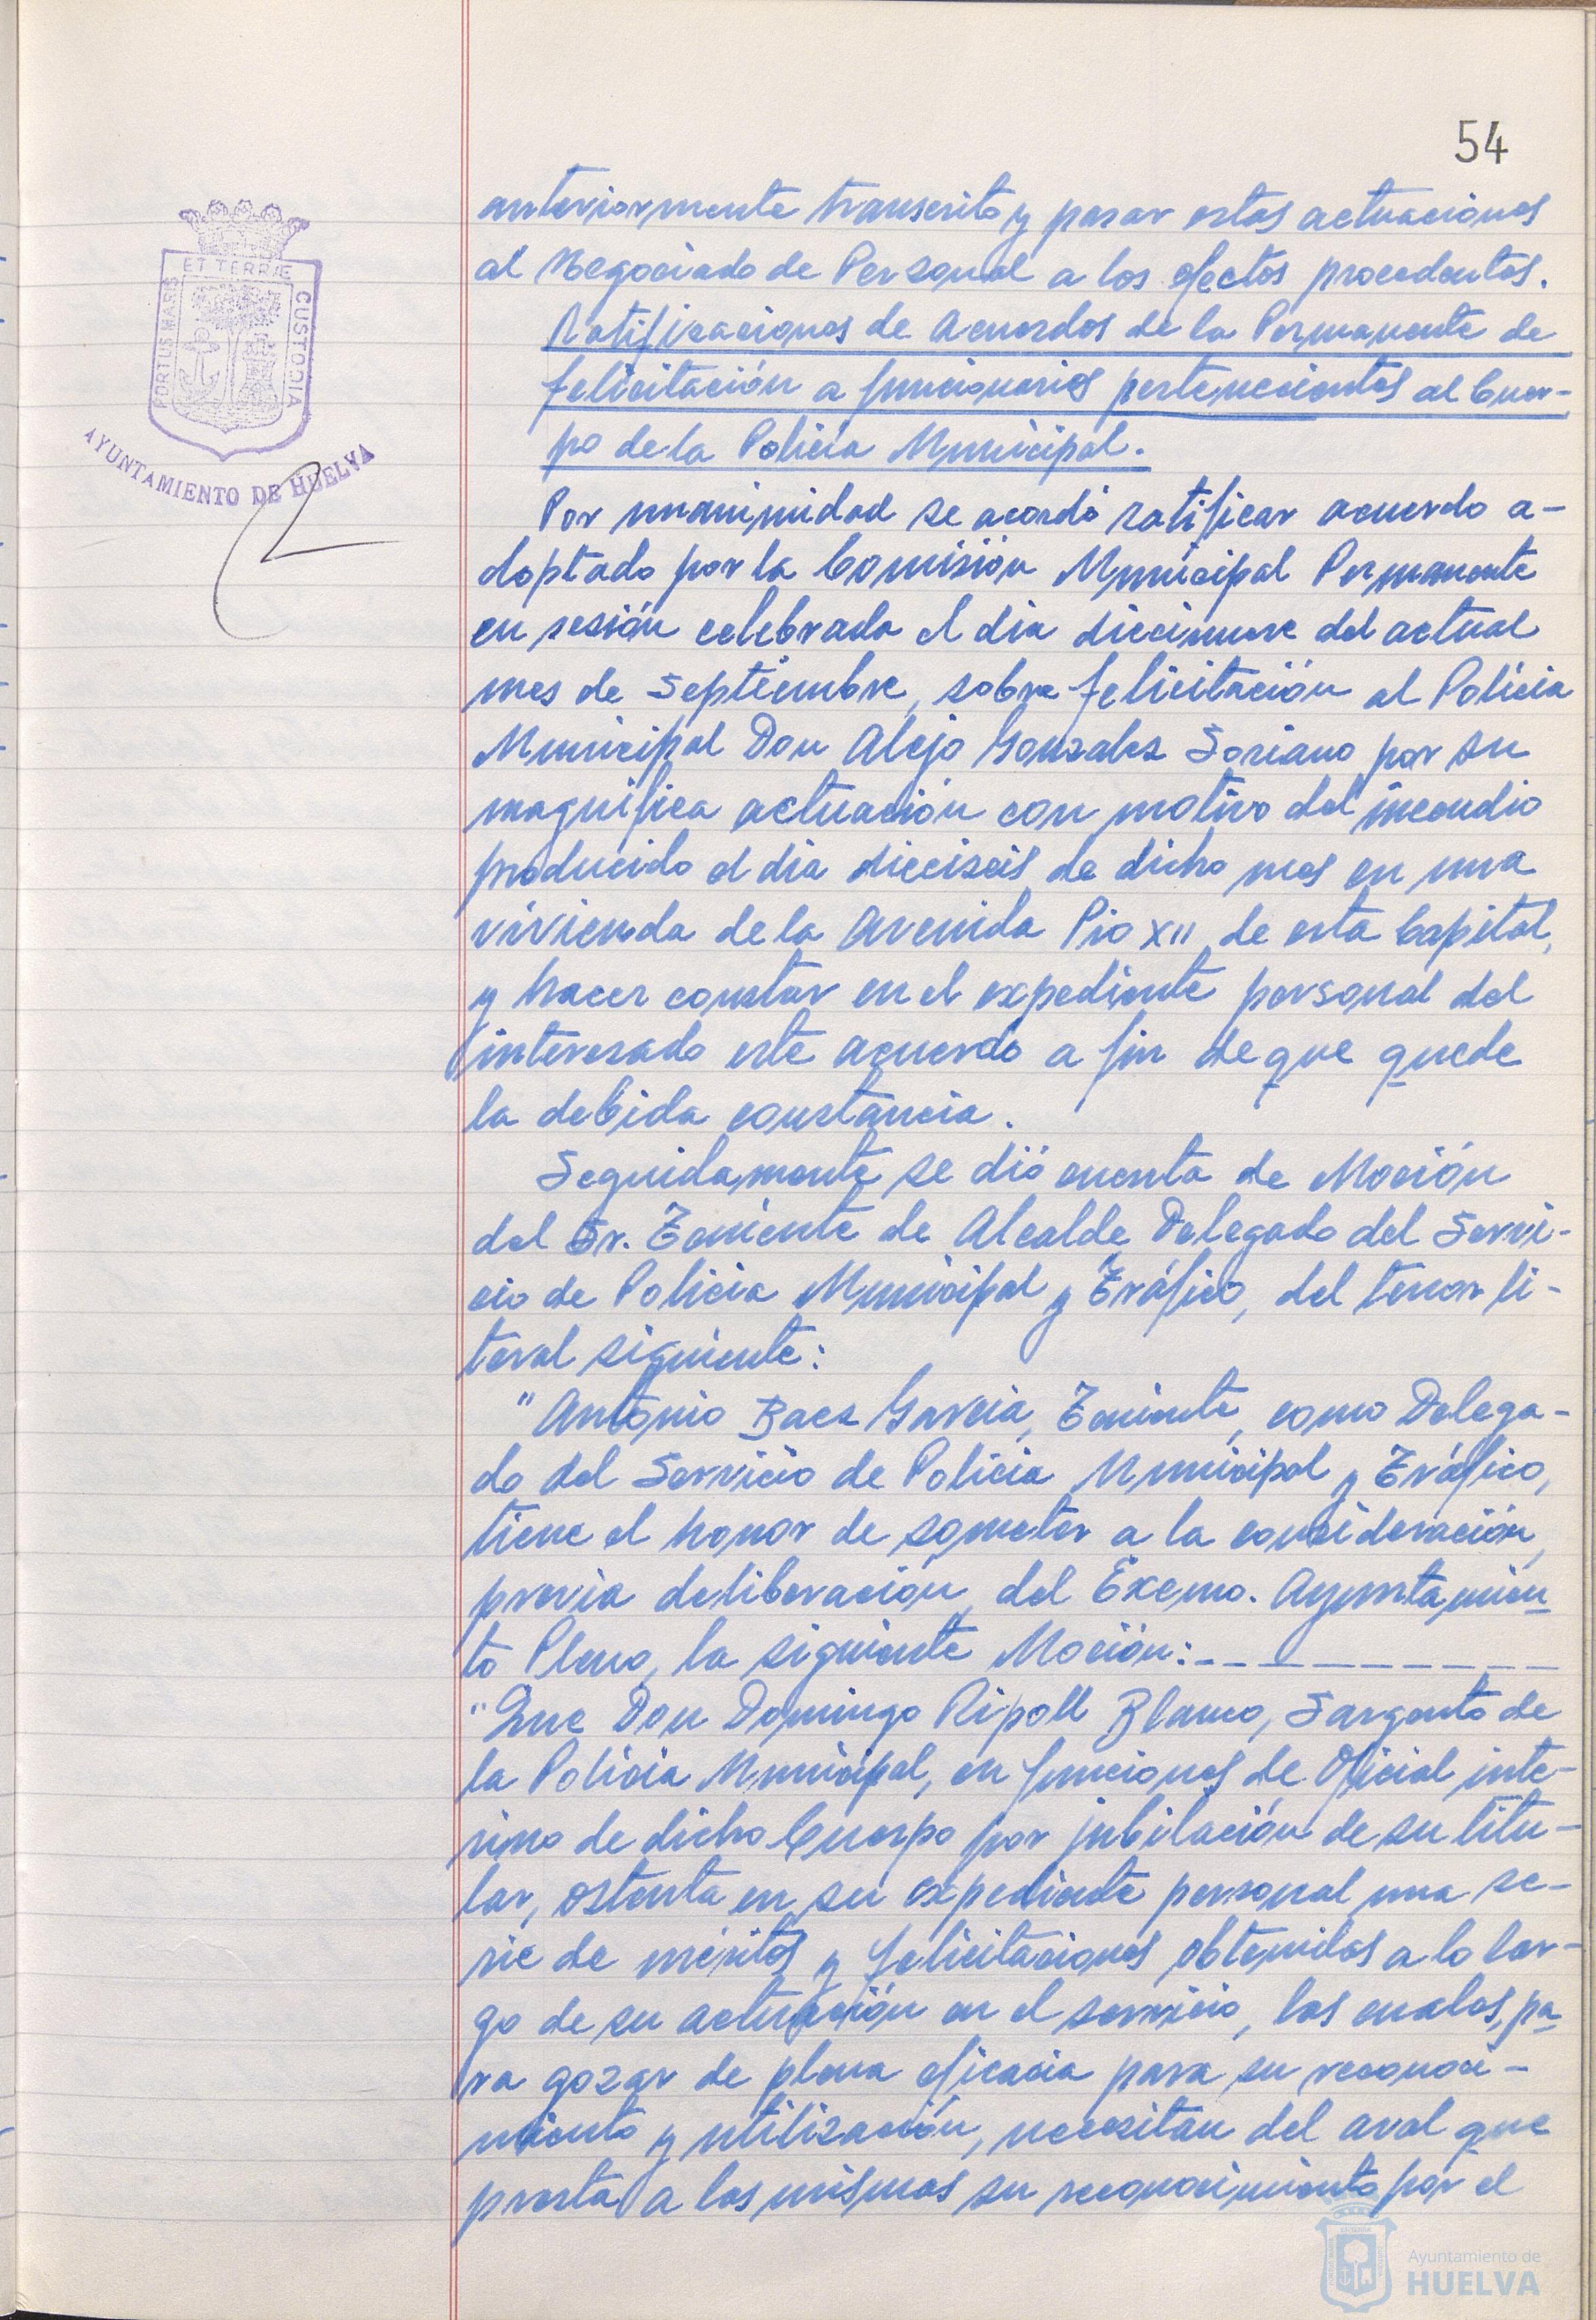 54
ET TERRÆ
PORTUS MARIS
CUSTODIA
AYUNTAMIENTO DE HUELVA
anteriormente transcrito y pasar estas actuaciones
al Negociado de Personal a los efectos procedentes.
Ratificaciones de Acuerdos de la Permanente de
felicitación a funcionarios pertenecientes al Cuer-
po de la Policia Municipal.
Por unanimidad se acordó ratificar acuerdo a-
doptado por la Comisión Municipal Permanente
en sesión celebrada el dia diecinueve del actual
mes de Septiembre, sobre felicitación al Policia
Municipal Don Alejo Gonzalez Soriano por su
magnifica actuación con motivo del incendio
producido el dia dieciseis de dicho mes en una
vivienda de la Avenida Pio XII, de esta Capital,
y hacer constar en el expediente personal del
interesado este acuerdo a fin de que quede
la debida constancia.
Seguidamente se dió cuenta de Moción
del Sr. Teniente de Alcalde Delegado del Servi-
cio de Policia Municipal y Tráfico, del tenor li-
teral siguiente:
"Antonio Baez Garcia, Teniente, como Delega-
do del Servicio de Policia Municipal y Tráfico,
tiene el honor de someter a la consideración,
previa deliberación, del Excmo. Ayuntamien
to Pleno, la siguiente Moción:_ _ _ _ _ _ _ _ _ _
"Que Don Domingo Ripoll Blanco, Sargento de
la Policia Municipal, en funciones de Oficial inte-
rino de dicho Cuerpo por jubilación de su titu-
lar, ostenta en su expediente personal una se-
rie de méritos y felicitaciones obtenidos a lo lar-
go de su actuación en el servicio, los cuales, pa
ra gozar de plena eficacia para su reconoci-
miento y utilización, necesitan del aval que
presta a los mismos su reconocimiento por el
Ayuntamiento de
HUELVA